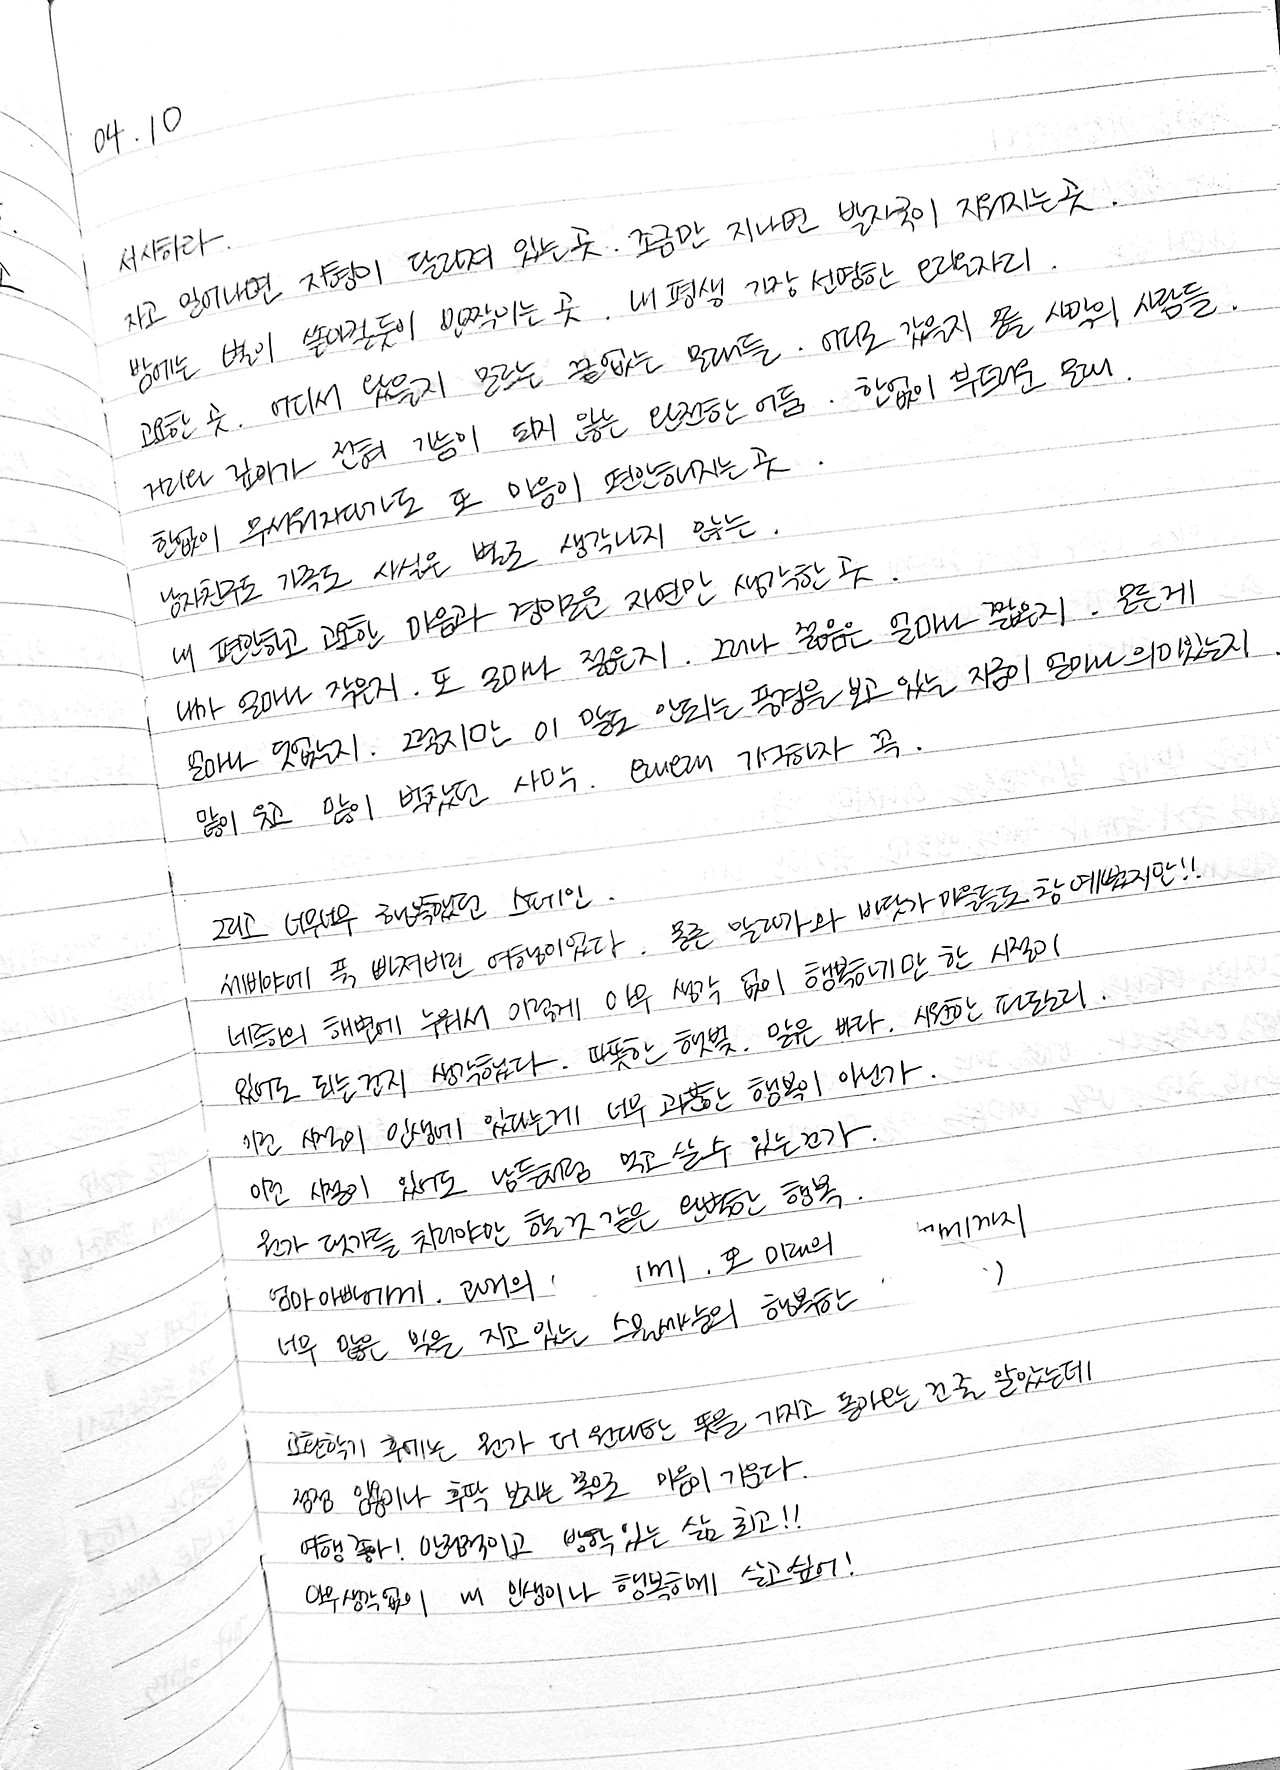 04.10
서사하라.
자고 일어나면 지형이 달라져 있는 곳. 조금만 지나면 발자국이 지워지는 곳.
밤에는 별이 쏟아질듯이 반짝이는 곳. 내 평생 가장 선명한 오리온자리.
고요한 곳. 어디서 왔을지 모르는 끝없는 모래들. 어디로 갔을지 모를 사막의 사람들.
거리와 깊이가 전혀 가늠이 되지 않는 완전한 어둠. 한없이 부드러운 모래.
한없이 무서워지다가도 또 마음이 편안해지는 곳.
남자친구도 가족도 사실은 별로 생각나지 않는.
내 편안하고 고요한 마음과 경이로운 자연만 생각한 곳.
내가 얼마나 작은지. 또 얼마나 젊은지. 그러나 젊음은 얼마나 짧은지. 모든게
얼마나 덧없는지. 그렇지만 이 말도 안되는 풍경을 보고 있는 지금이 얼마나 의미있는지.
많이 웃고 많이 벅찼던 사막. 오래오래 기억하자 꼭.
그리고 너무너무 행복했던 스페인.
세비야에 푹 빠져버린 여행이었다. 물론 말라가와 바닷가 마을들도 참 예뻤지만!!
네르하의 해변에 누워서 이렇게 아무 생각 없이 행복하기만 한 시절이
있어도 되는건지 생각했다. 따뜻한 햇빛. 맑은 바다. 시원한 파도소리.
이런 시절이 인생에 있다는게 너무 과분한 행복이 아닌가.
이런 시절이 있어도 남들처럼 먹고 살 수 있는건가.
뭔가 댓가를 치러야만 할 것 같은 완벽한 행복.
엄마아빠에게. 과거의 또 미래의 에게까지
너무 많은 빚을 지고 있는 스물세살의 행복한 :)
교환학기 후에는 뭔가 더 원대한 뜻을 가지고 돌아오는 건줄 알았는데
점점 임용이나 후딱 보자는 쪽으로 마음이 기운다.
여행 좋아! 안정적이고 방학있는 삶 최고!!
아무생각없이 내 인생이나 행복하게 살고싶어!